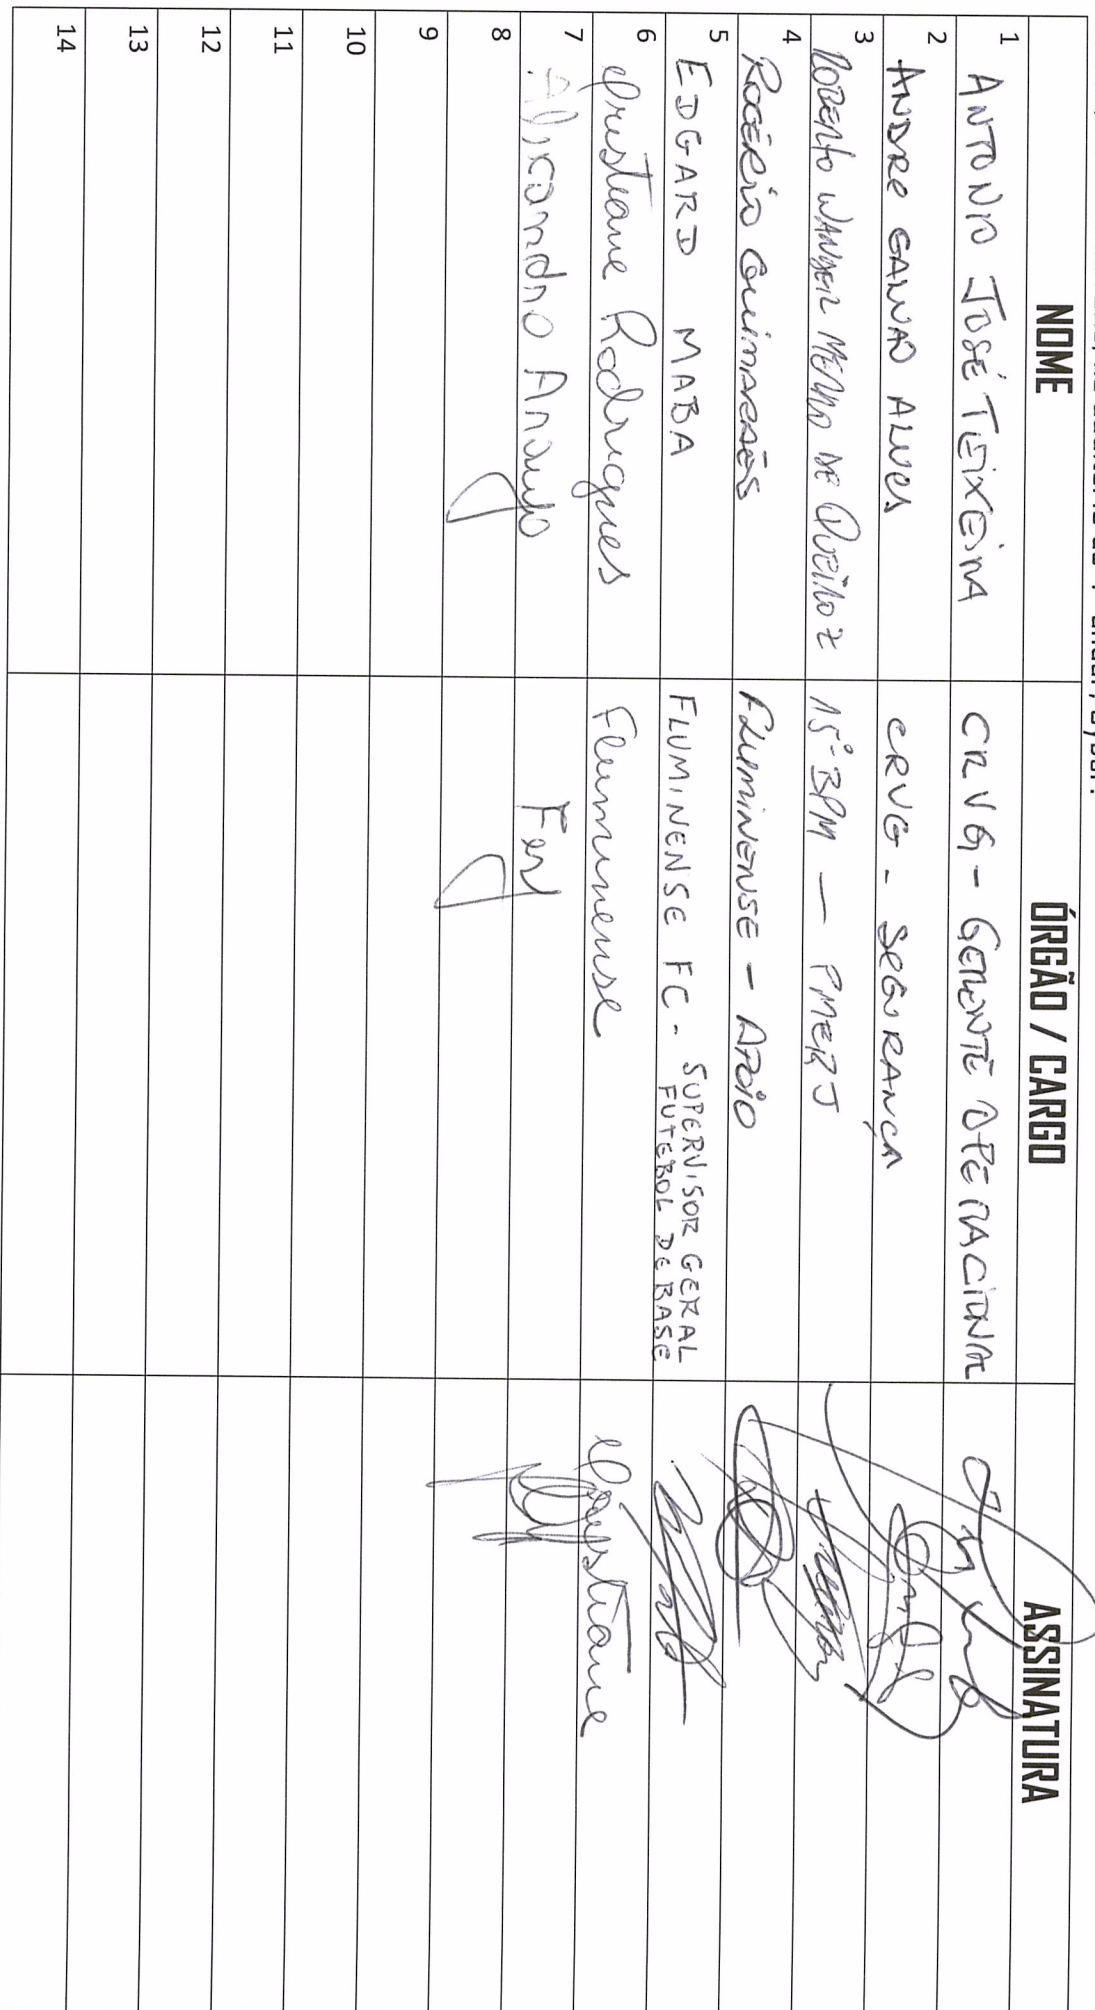 NOME ÓRGÃO / CARGO ASSINATURA
1 ANTONIO JOSÉ TEIXEIRA CRVG - GERENTE OPERACIONAL
2 ANDRE GALVAO ALVES CRVG - SEGURANÇA
3 ROBERTO WANGER MELLO DE QUEIROZ 15º BPM — PMERJ
4 ROGÉRIO GUIMARÃES FLUMINENSE - APOIO
5 EDGARD MABA FLUMINENSE FC - SUPERVISOR GERAL
FUTEBOL DE BASE
6 Cristiane Rodrigues Fluminense Cristiane
7 Alexandro Araujo Ferj
8
9
10
11
12
13
14